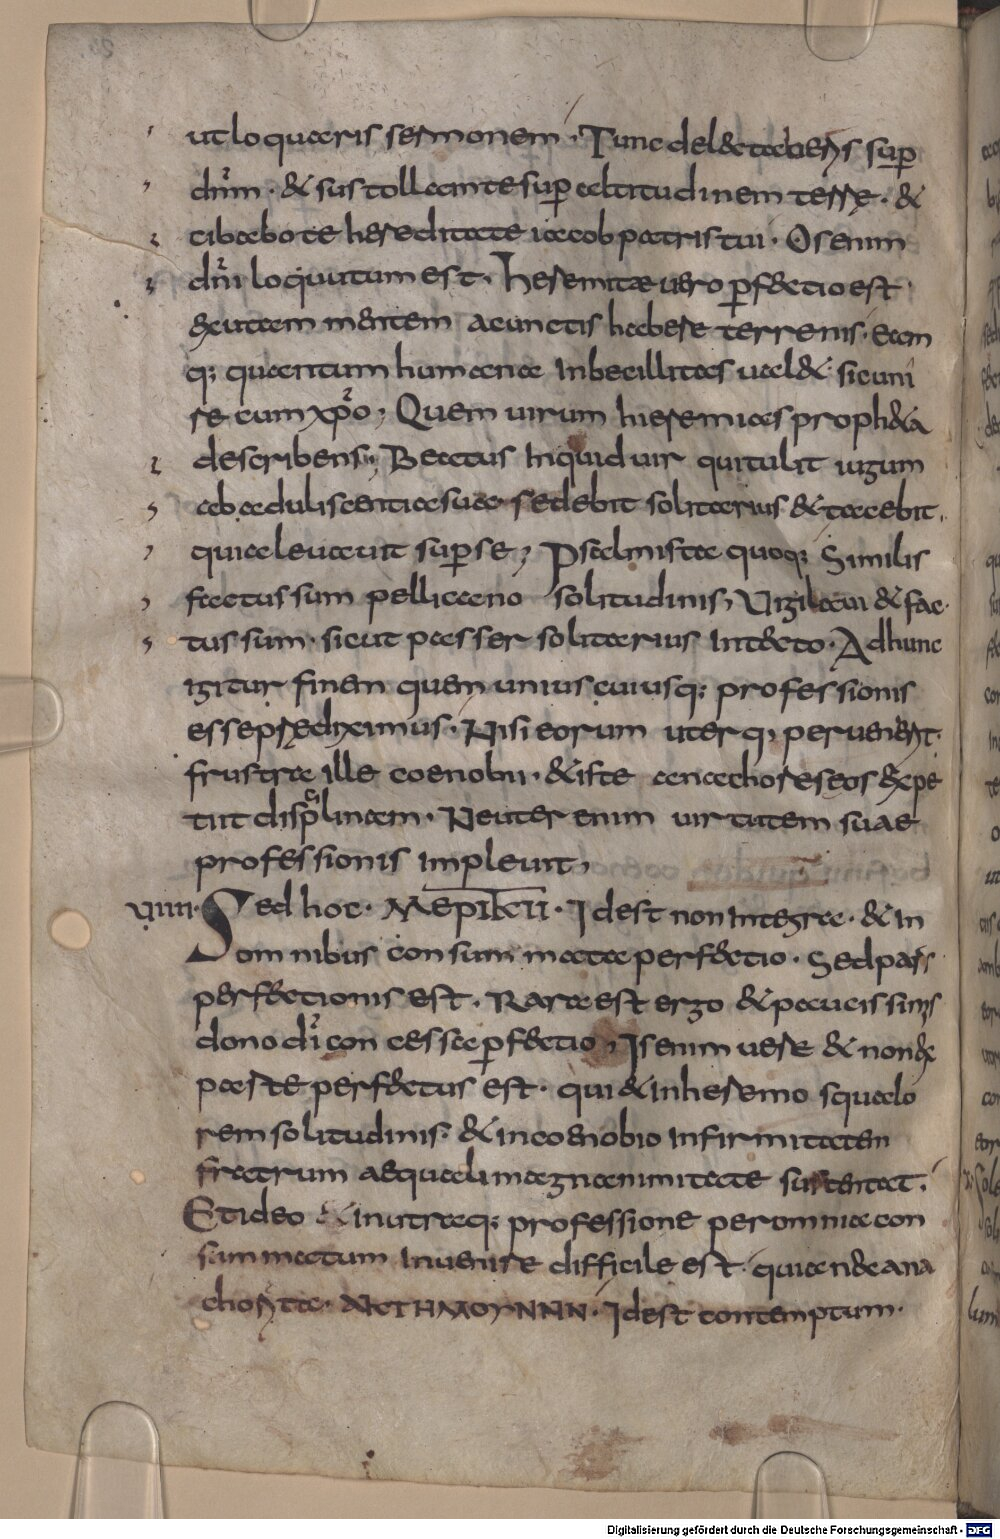 ut loquaris sermonem. Tunc delectaberis sup
dnm. & sustollam te sup altitudinem terre. &
cibabo te hereditate iacob patris tui. Os enim
dni loquutum est. heremitae uero pfectio est
exutam mentem a cunctis habere terrenis. eam
q; quantum humana inbecillitas ualet. sic uni
re cum xpo; Quem uirum hieremias propheta
describens; Beatus inquid uir qui tulit iugum
ab aduliscentia sua. sedebit solitarius & tacebit,
quia leuauit sup se; Psalmista quoq; Similis
factus sum pellicano solitudinis, Uigilaui & fac
tus sum. sicut passer solitarius in tecto. Ad hunc
igitur finem quem unius cuiusq; professionis
esse prediximus. Nisi eorum uterq; peruenerit.
frustra ille coenobii. & iste anachoreseos expe
tiit displinam. Neuter enim uirtutem suae
professionis impleuit,
VIIII. Sed hoc. ΜΕΡΙΚΗ. Idest non integra. & in
omnibus consummata perfectio. Sed pars
perfectionis est. Rara est ergo & paucis simis
dono di concessa pfectio, Is enim uere & non ex
parte perfectus est. qui & in heremo squalo
rem solitudinis. & in coenobio infirmitatem
fratrum aequali magnanimitate sustentat.
Et ideo & in utraq; professione per omnia con
summatum inuenire difficile est. quia nec ana
choreta. ΑΚΤΗΜΟΣΥΝΗΝ. Idest contemptum.
Digitalisierung gefördert durch die Deutsche Forschungsgemeinschaft - DFG